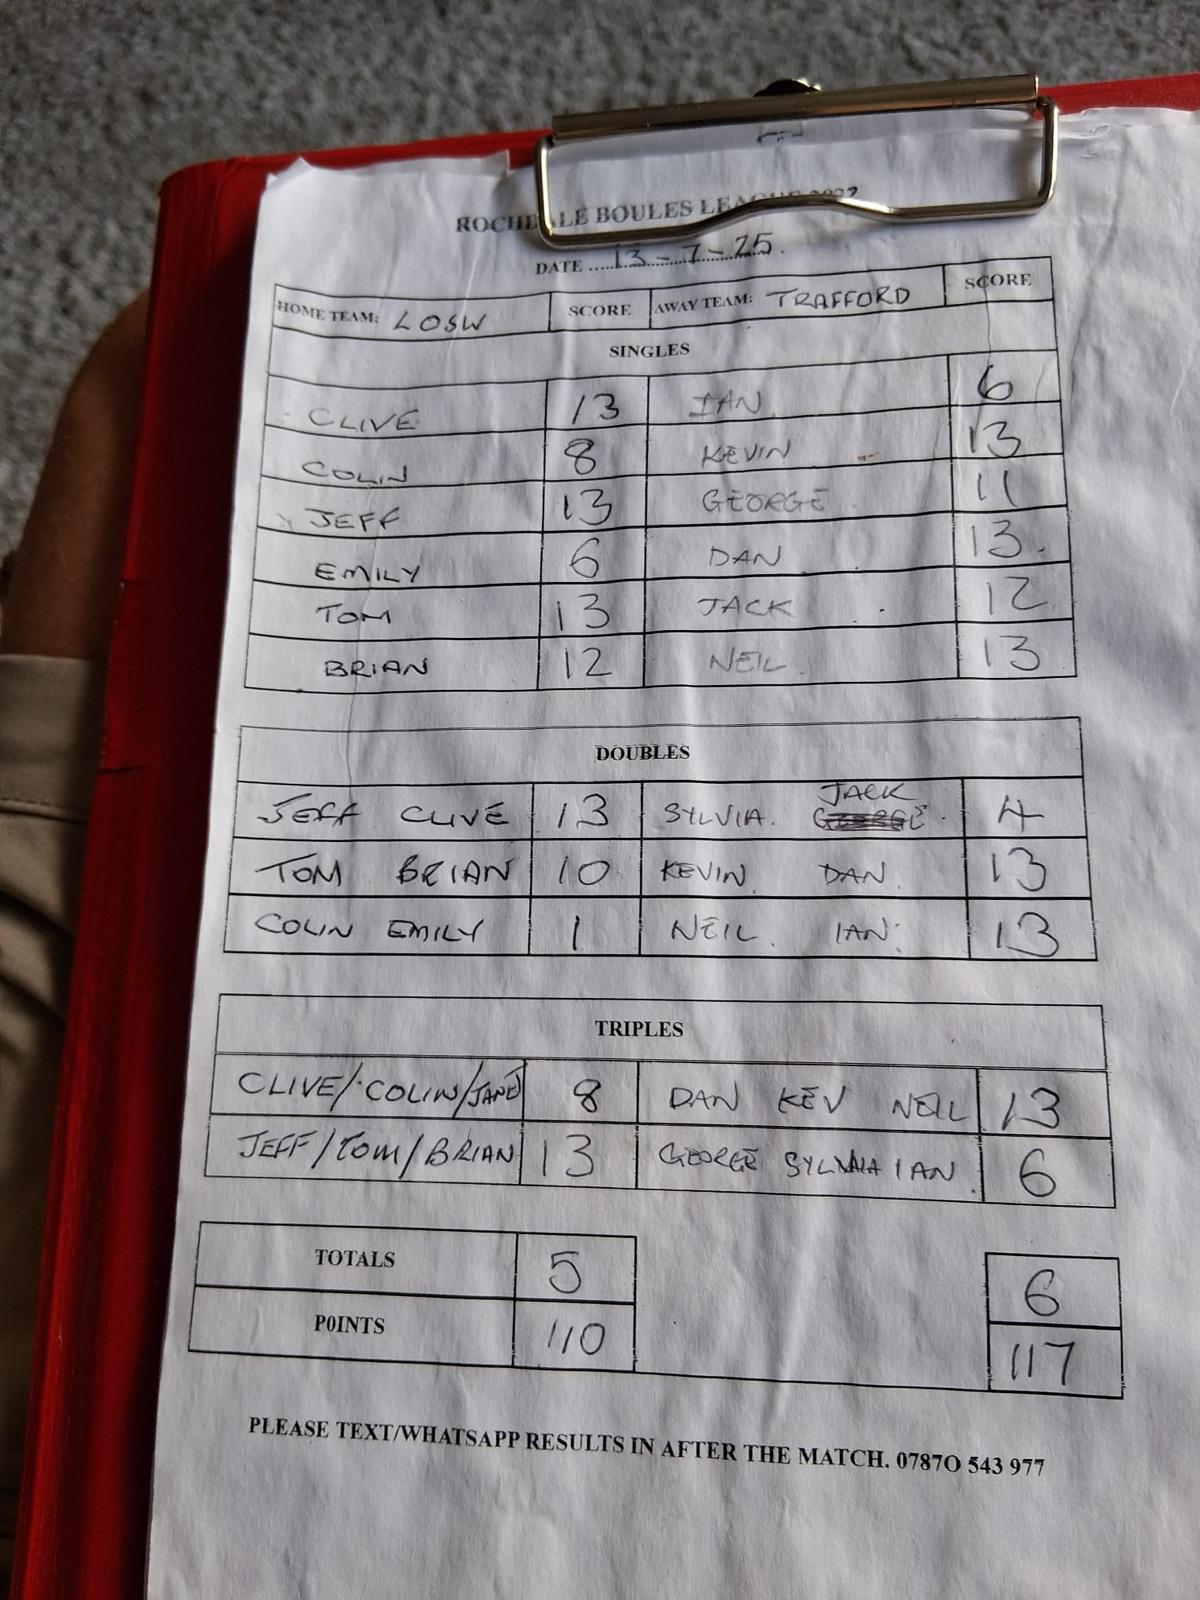 ROCHDALE BOULES LEAGUE 2022
DATE ....13-7-25.
HOME TEAM: LOSW SCORE AWAY TEAM: TRAFFORD SCORE
SINGLES
CLIVE 13 IAN 6
COLIN 8 KEVIN 13
JEFF 13 GEORGE 11
EMILY 6 DAN 13.
TOM 13 JACK 12
BRIAN 12 NEIL 13
DOUBLES
JACK
JEFF CLIVE 13 SYLVIA. 4
TOM BRIAN 10 KEVIN DAN 13
COLIN EMILY 1 NEIL. IAN 13
TRIPLES
CLIVE/COLIN/JANE 8 DAN KEV NEIL 13
JEFF/TOM/BRIAN 13 GEORGE SYLVIA IAN 6
TOTALS 5 6
POINTS 110 117
PLEASE TEXT/WHATSAPP RESULTS IN AFTER THE MATCH. 0787O 543 977